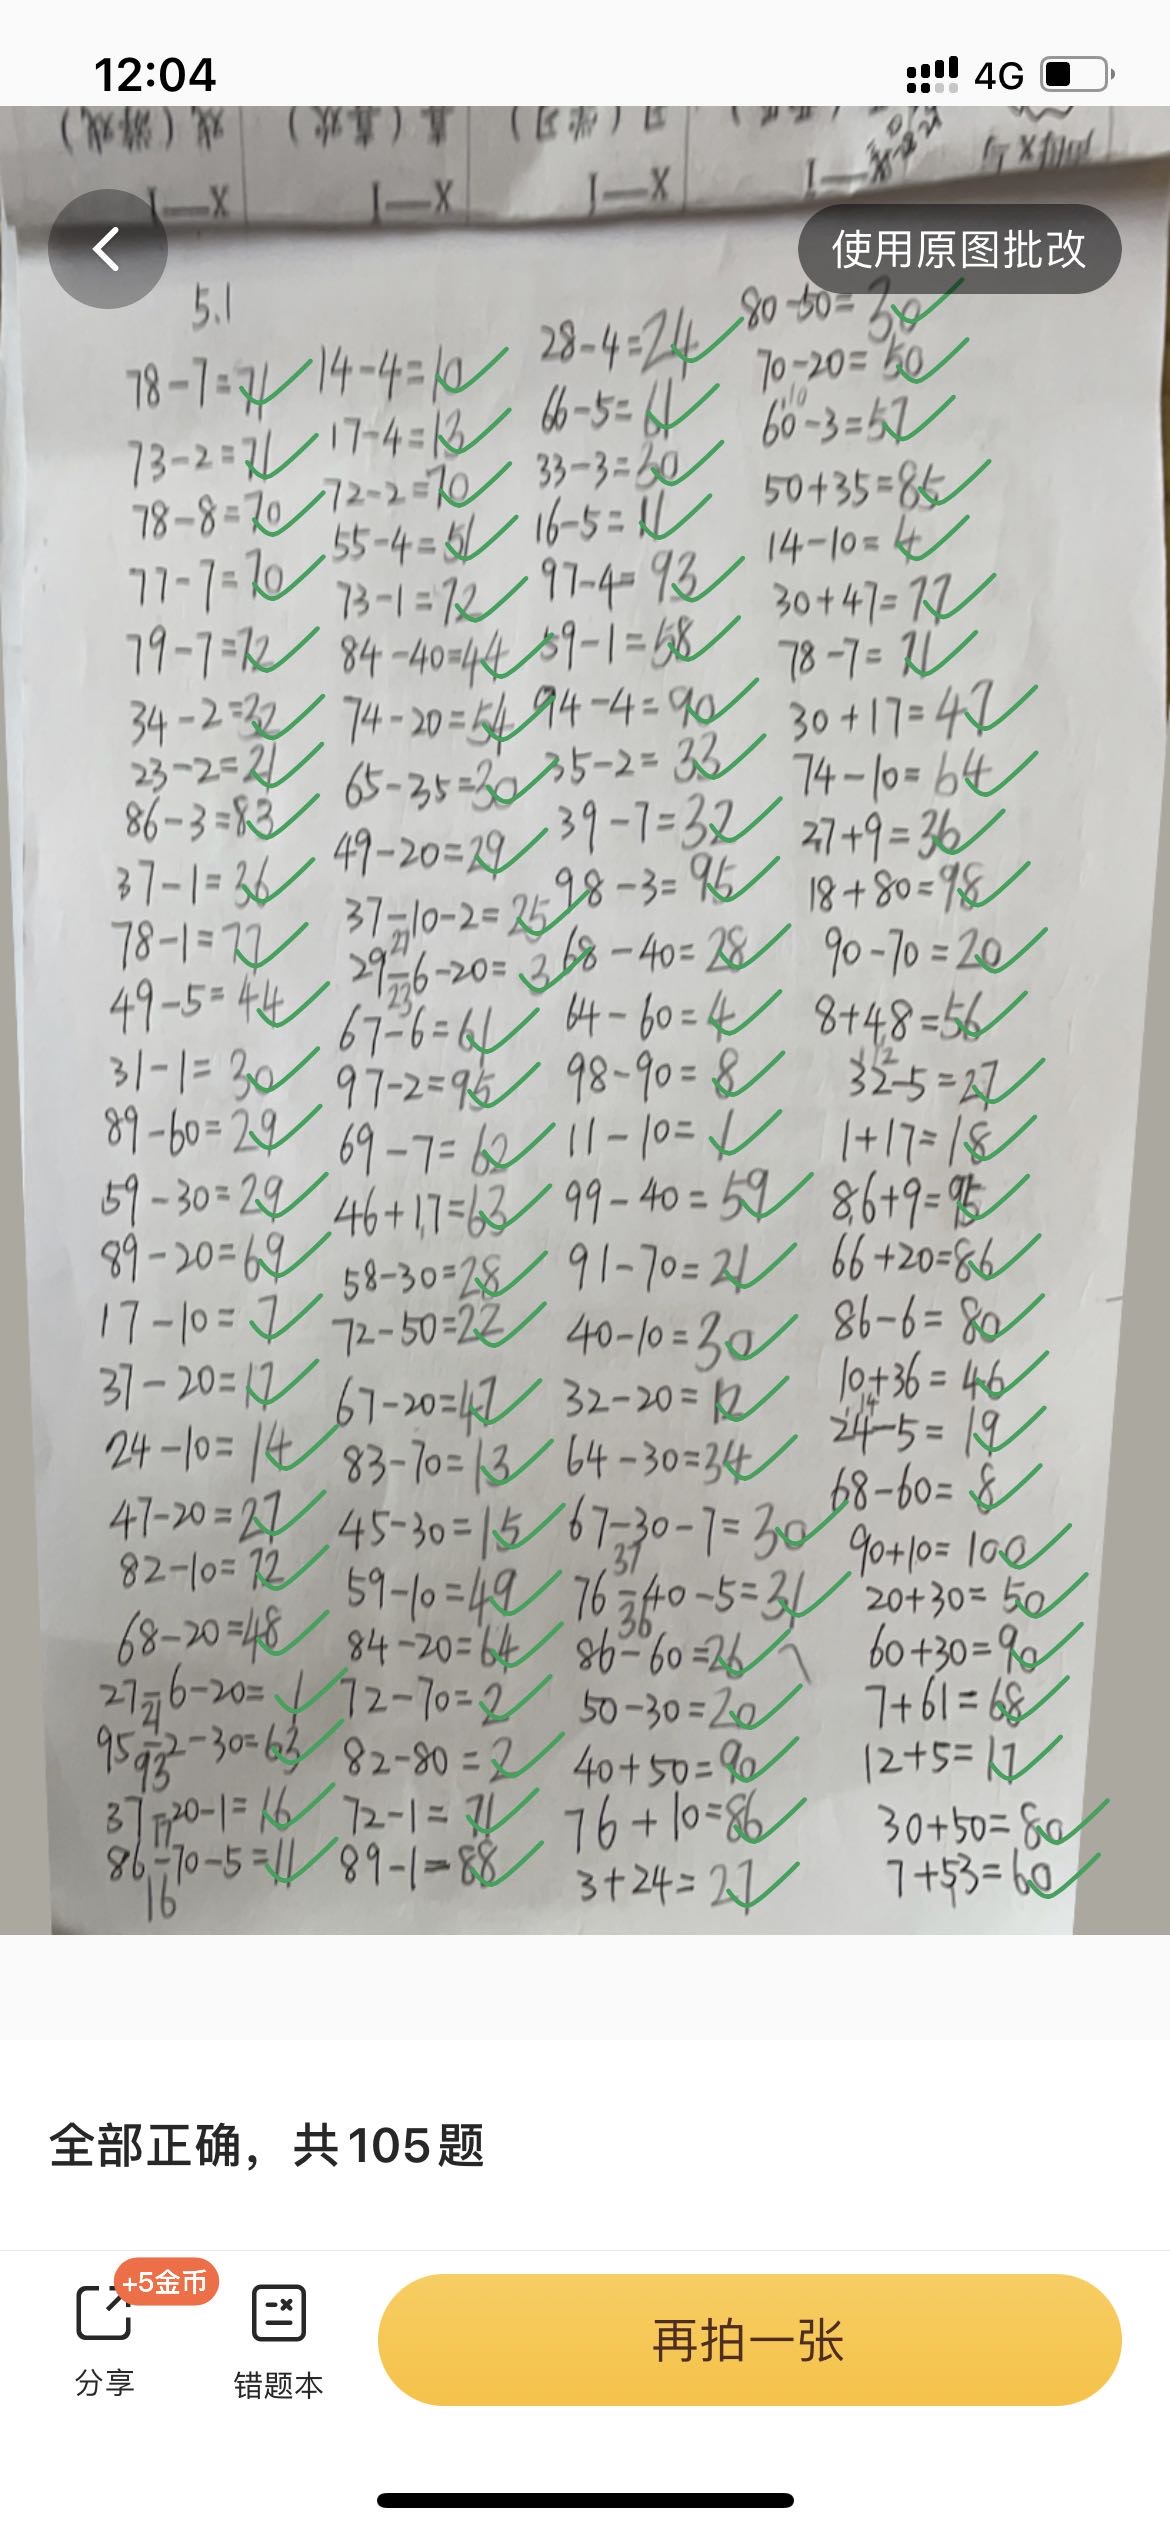 12:04
4G
使用原图批改
5.1
78-7=71
73-2=71
78-8=70
77-7=70
79-7=72
34-2=32
23-2=21
86-3=83
37-1=36
78-1=77
49-5=44
31-1=30
89-60=29
59-30=29
89-20=69
17-10=7
37-20=17
24-10=14
47-20=27
82-10=72
68-20=48
27-6-20=1
21
95-2-30=63
93
37-20-1=16
17
86-70-5=11
16
14-4=10
17-4=13
72-2=70
55-4=51
73-1=72
84-40=44
74-20=54
65-35=30
49-20=29
37-10-2=25
27
29-6-20=3
23
67-6=61
97-2=95
69-7=62
46+17=63
58-30=28
72-50=22
67-20=47
83-70=13
45-30=15
59-10=49
84-20=64
72-70=2
82-80=2
72-1=71
89-1=88
28-4=24
66-5=61
33-3=30
16-5=11
97-4=93
59-1=58
94-4=90
35-2=33
39-7=32
98-3=95
68-40=28
64-60=4
98-90=8
11-10=1
99-40=59
91-70=21
40-10=30
32-20=12
64-30=34
67-30-7=30
37
76-40-5=31
36
86-60=26
50-30=20
40+50=90
76+10=86
3+24=27
80-50=30
70-20=50
10
60-3=57
50+35=85
14-10=4
30+47=77
78-7=71
30+17=47
74-10=64
27+9=36
18+80=98
90-70=20
8+48=56
12
32-5=27
1+17=18
86+9=95
66+20=86
86-6=80
10+36=46
14
24-5=19
68-60=8
90+10=100
20+30=50
60+30=90
7+61=68
12+5=17
30+50=80
7+53=60
全部正确，共105题
+5金币
分享
错题本
再拍一张